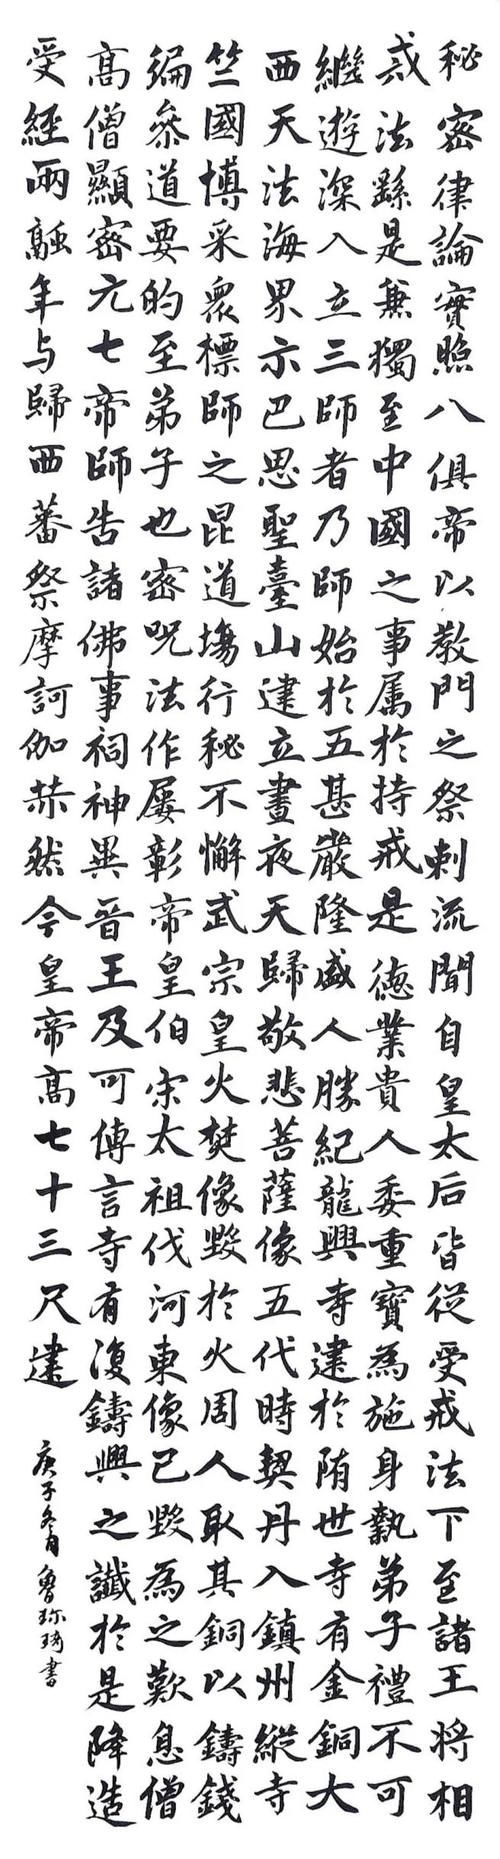 秘密律論實照八俱帝以教門之祭刺流聞自皇太后皆從受戒法下至諸王將相
戒法繇是兼獨至中國之事属於持戒是德業貴人委重寶為施身執弟子禮不可
繼遊深入立三師者乃師始於五甚嚴隆盛人勝紀龍興寺建於隋世寺有金銅大
西天法海界示巴思聖臺山建立晝夜天歸敬悲菩薩像五代時契丹入鎮州縱寺
竺國博采衆標師之昆道場行秘不懈武宗皇火焚像毀於火周人取其銅以鑄錢
徧參道要的至弟子也密呪法作屡彰帝皇伯宋太祖伐河東像已毀為之歎息僧
高僧顯密元七帝師告諸佛事祠神異晉王及可傳言寺有復鑄興之讖於是降造
受經兩融年与歸西蕃祭摩訶伽赫然今皇帝高七十三尺建
庚子冬月魯珎琦書